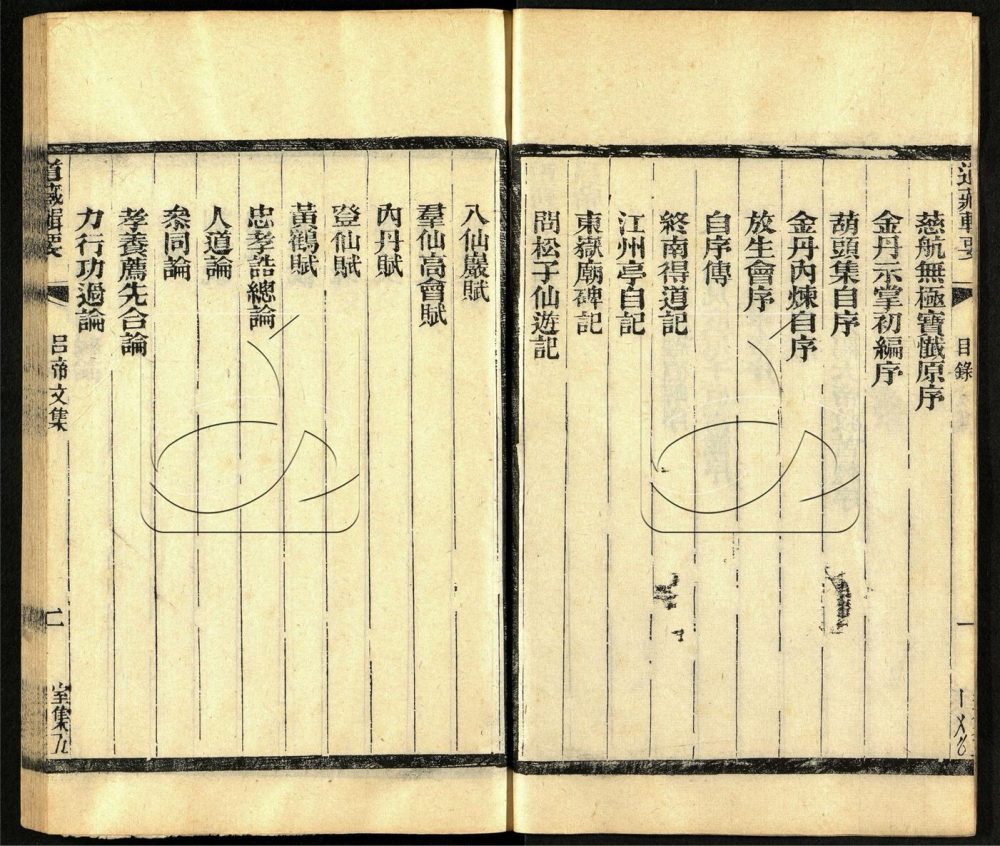 道藏輯要
目錄
一
慈航無極寶懺原序
金丹示掌初編序
葫頭集自序
金丹內煉自序
放生會序
自序傳
終南得道記
江州亭自記
東嶽廟碑記
問松子仙遊記
八仙巖賦
羣仙高會賦
內丹賦
登仙賦
黃鶴賦
忠孝誥總論
人道論
叅同論
孝養薦先合論
力行功過論
道藏輯要
呂帝文集
二
室集五